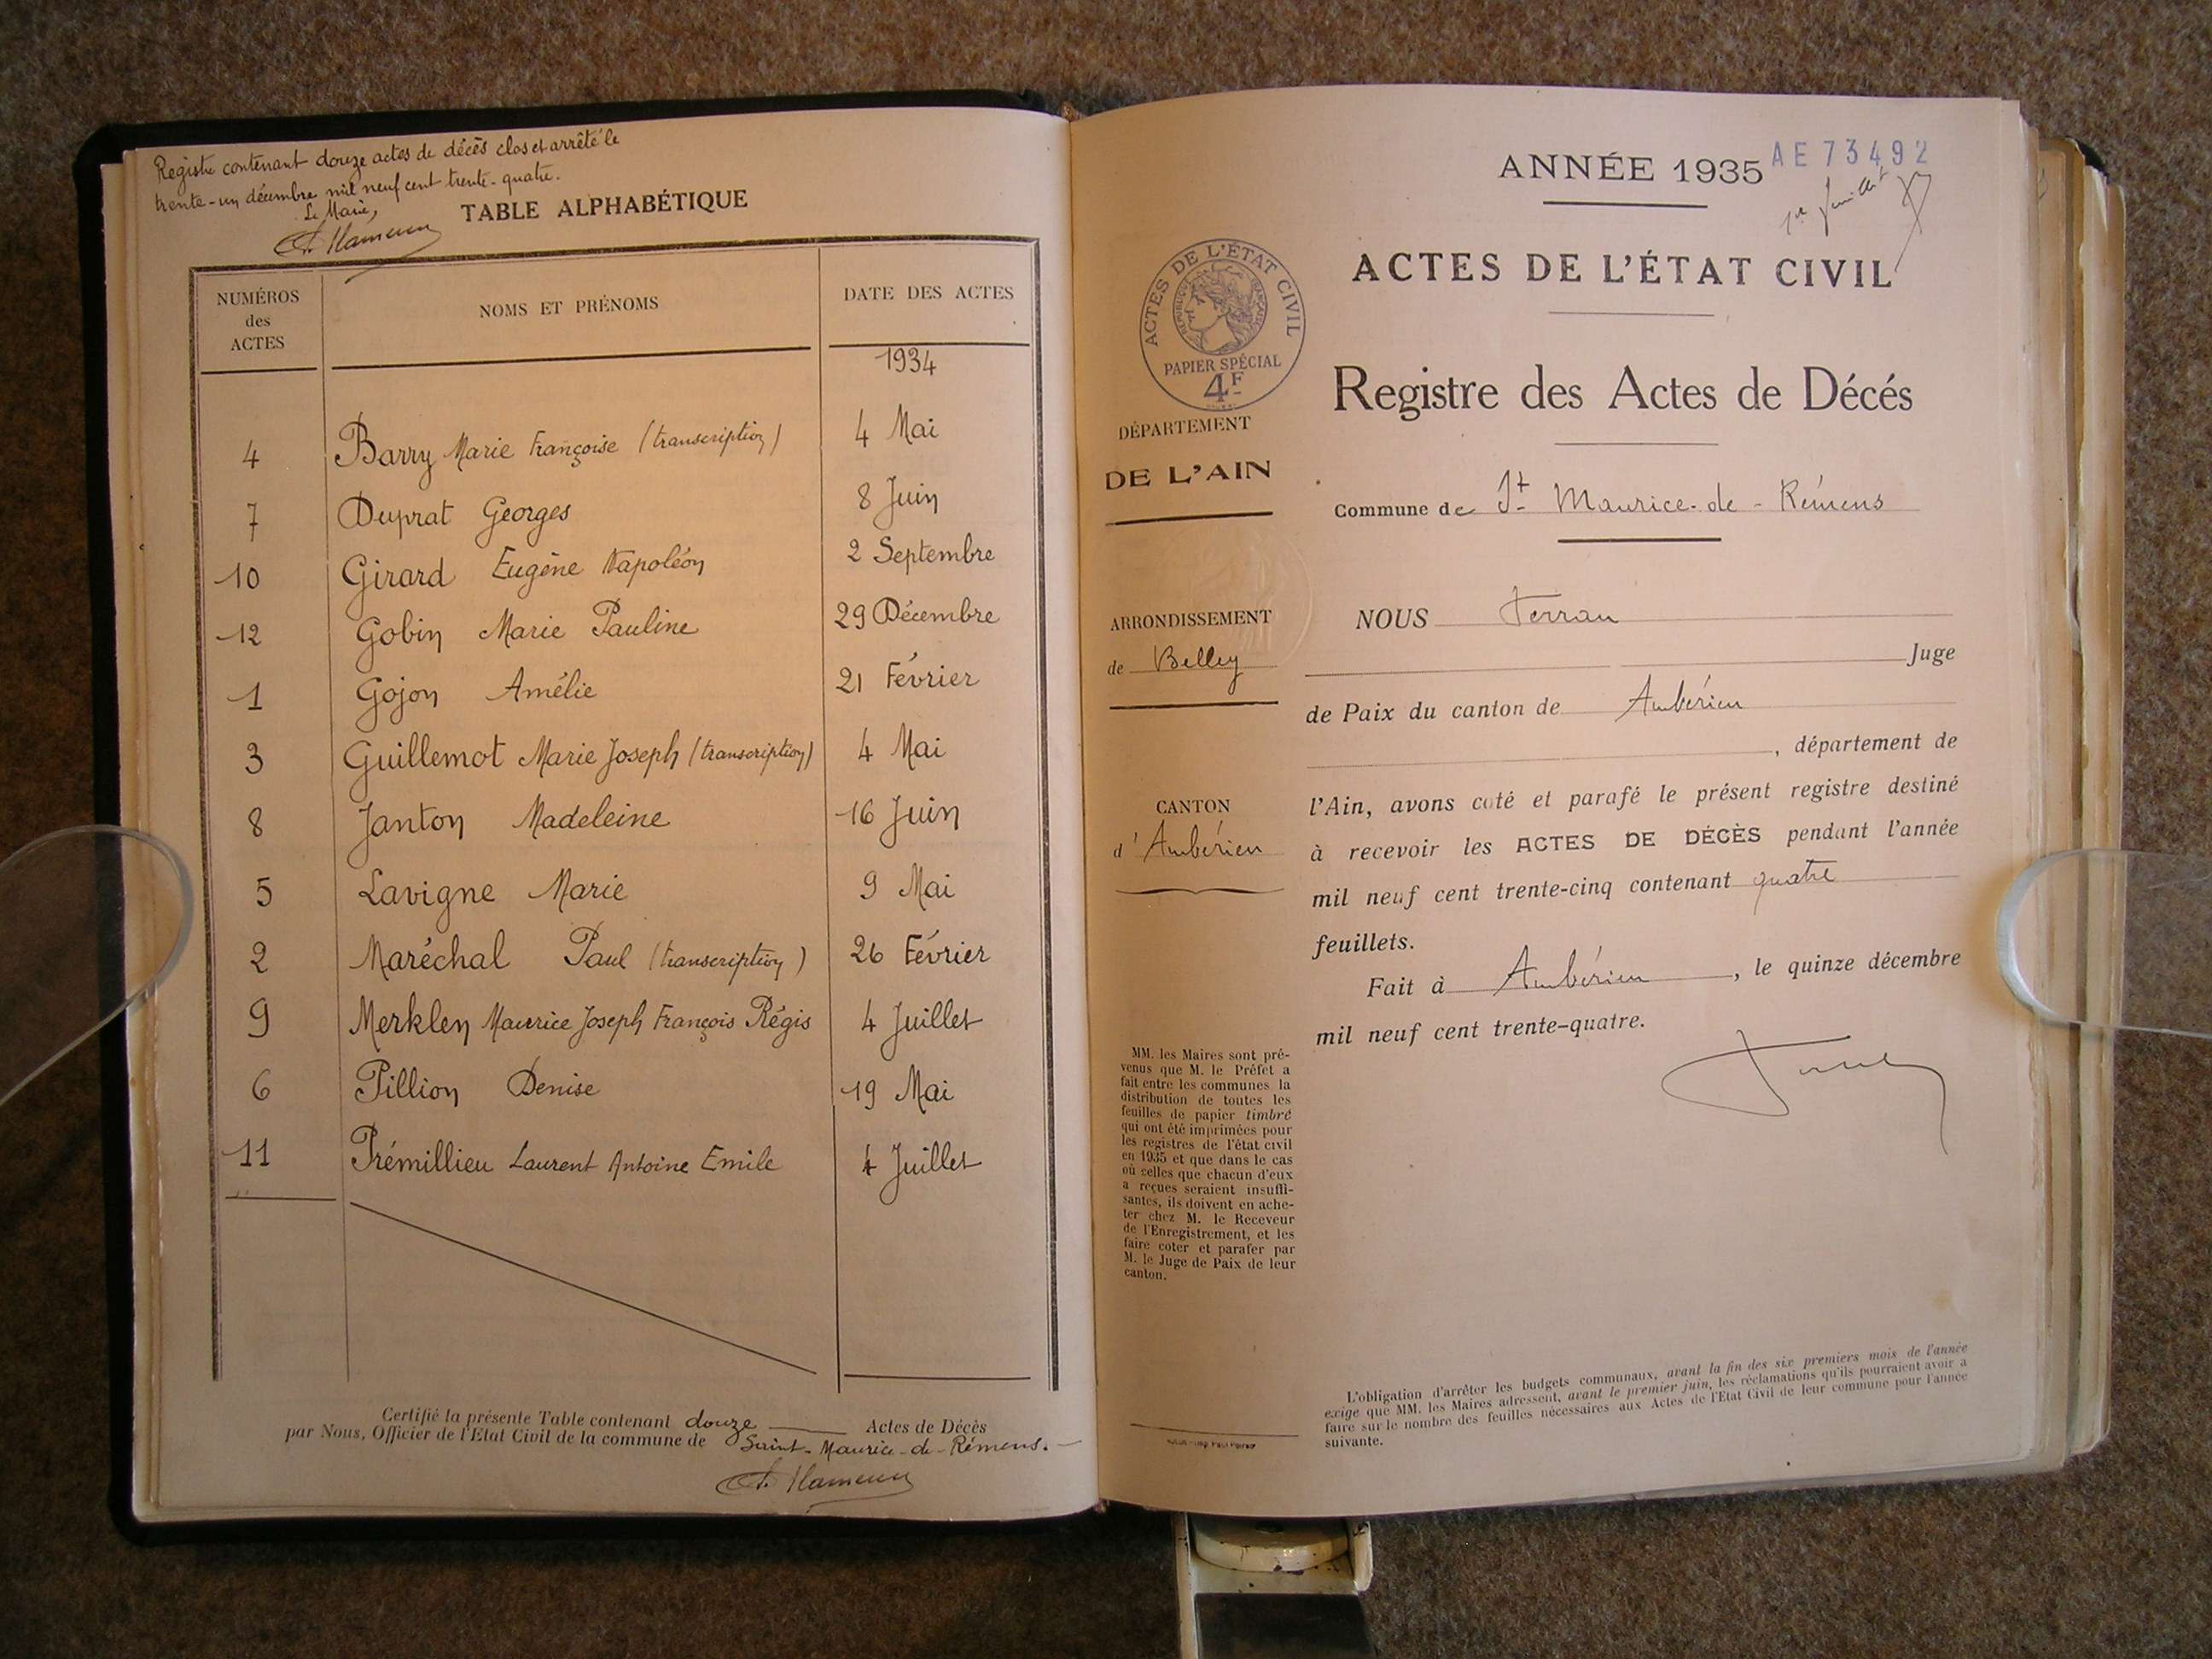 Registre contenant douze actes de décès clos et arrêté le
trente-un décembre mil neuf cent trente-quatre.
Le Maire,
TABLE ALPHABÉTIQUE
NUMÉROS
des
ACTES
NOMS ET PRÉNOMS
DATE DES ACTES
1934
4 Barry Marie Françoise (transcription) 4 Mai
7 Duprat Georges 8 Juin
10 Girard Eugène Napoléon 2 Septembre
12 Gobin Marie Pauline 29 Décembre
1 Gojon Amélie 21 Février
3 Guillemot Marie Joseph (transcription) 4 Mai
8 Janton Madeleine 16 Juin
5 Lavigne Marie 9 Mai
2 Maréchal Paul (transcription) 26 Février
9 Merklen Maurice Joseph François Régis 4 Juillet
6 Pillion Denise 19 Mai
11 Prémillieu Laurent Antoine Emile 4 Juillet
Certifié la présente Table contenant douze Actes de Décès
par Nous, Officier de l'Etat Civil de la commune de Saint-Maurice-de-Rémens.
ANNÉE 1935
AE 73492
1er feuillet
ACTES DE L'ÉTAT CIVIL
RÉPUBLIQUE FRANÇAISE
PAPIER SPÉCIAL
4F
ACTES DE L'ÉTAT CIVIL
Registre des Actes de Décés
DÉPARTEMENT
DE L'AIN
Commune de St Maurice-de-Rémens
ARRONDISSEMENT
de Belley
NOUS Ferran
Juge
de Paix du canton de Ambérieu
, département de
CANTON
d'Ambérieu
l'Ain, avons coté et parafé le présent registre destiné
à recevoir les ACTES DE DÉCÈS pendant l'année
mil neuf cent trente-cinq contenant quatre
feuillets.
Fait à Ambérieu, le quinze décembre
mil neuf cent trente-quatre.
MM. les Maires sont pré-
venus que M. le Préfet a
fait entre les communes la
distribution de toutes les
feuilles de papier timbré
qui ont été imprimées pour
les registres de l'état civil
en 1935 et que dans le cas
où celles que chacun d'eux
a reçues seraient insuffi-
santes, ils doivent en ache-
ter chez M. le Receveur
de l'Enregistrement, et les
faire coter et parafer par
M. le Juge de Paix de leur
canton.
L'obligation d'arrêter les budgets communaux, avant la fin des six premiers mois de l'année
exige que MM. les Maires adressent, avant le premier juin, les réclamations qu'ils pourraient avoir à
faire sur le nombre des feuilles nécessaires aux Actes de l'Etat Civil de leur commune pour l'année
suivante.